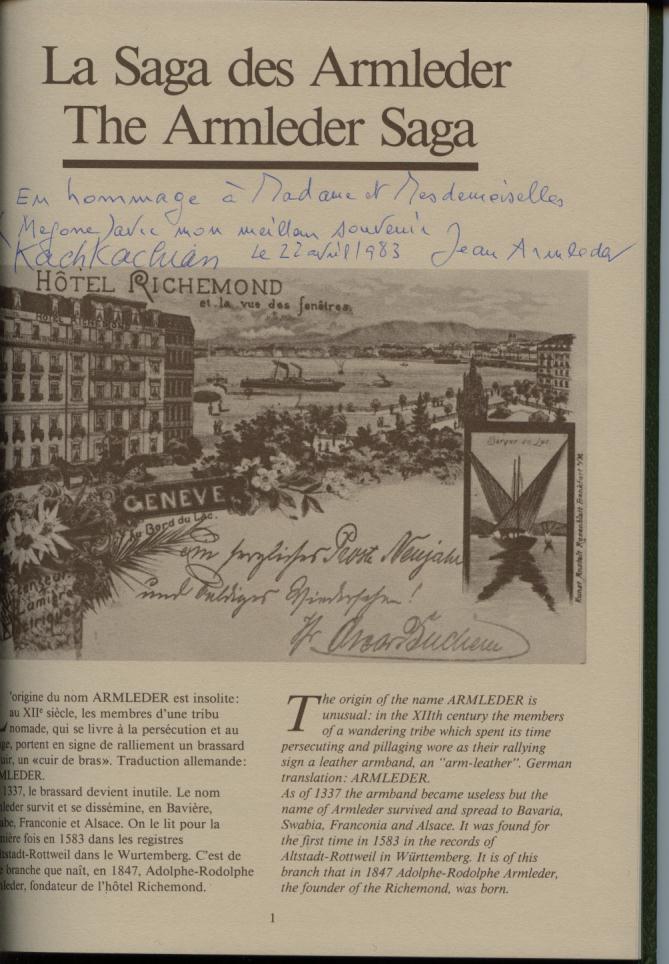 La Saga des Armleder
The Armleder Saga
En hommage à Madame et Mesdemoiselles
avec mon meilleur souvenir
Kachkachian Le 22 avril 1983 Jean Armleder
HÔTEL RICHEMOND
et la vue des fenêtres.
HÔTEL RICHEMOND
GENÈVE
Au Bord du Lac.
Barque du Lac.
Kunst Anstalt Rosenblatt Frankfurt a/M.
Ein herzliches Prosit Neujahr
und baldiges Wiedersehen!
Ihr Oscar
'origine du nom ARMLEDER est insolite:
au XIIe siècle, les membres d'une tribu
nomade, qui se livre à la persécution et au
ge, portent en signe de ralliement un brassard
uir, un «cuir de bras». Traduction allemande:
MLEDER.
1337, le brassard devient inutile. Le nom
leder survit et se dissémine, en Bavière,
abe, Franconie et Alsace. On le lit pour la
mière fois en 1583 dans les registres
ltstadt-Rottweil dans le Wurtemberg. C'est de
e branche que naît, en 1847, Adolphe-Rodolphe
leder, fondateur de l'hôtel Richemond.
The origin of the name ARMLEDER is
unusual: in the XIIth century the members
of a wandering tribe which spent its time
persecuting and pillaging wore as their rallying
sign a leather armband, an "arm-leather". German
translation: ARMLEDER.
As of 1337 the armband became useless but the
name of Armleder survived and spread to Bavaria,
Swabia, Franconia and Alsace. It was found for
the first time in 1583 in the records of
Altstadt-Rottweil in Württemberg. It is of this
branch that in 1847 Adolphe-Rodolphe Armleder,
the founder of the Richemond, was born.
1